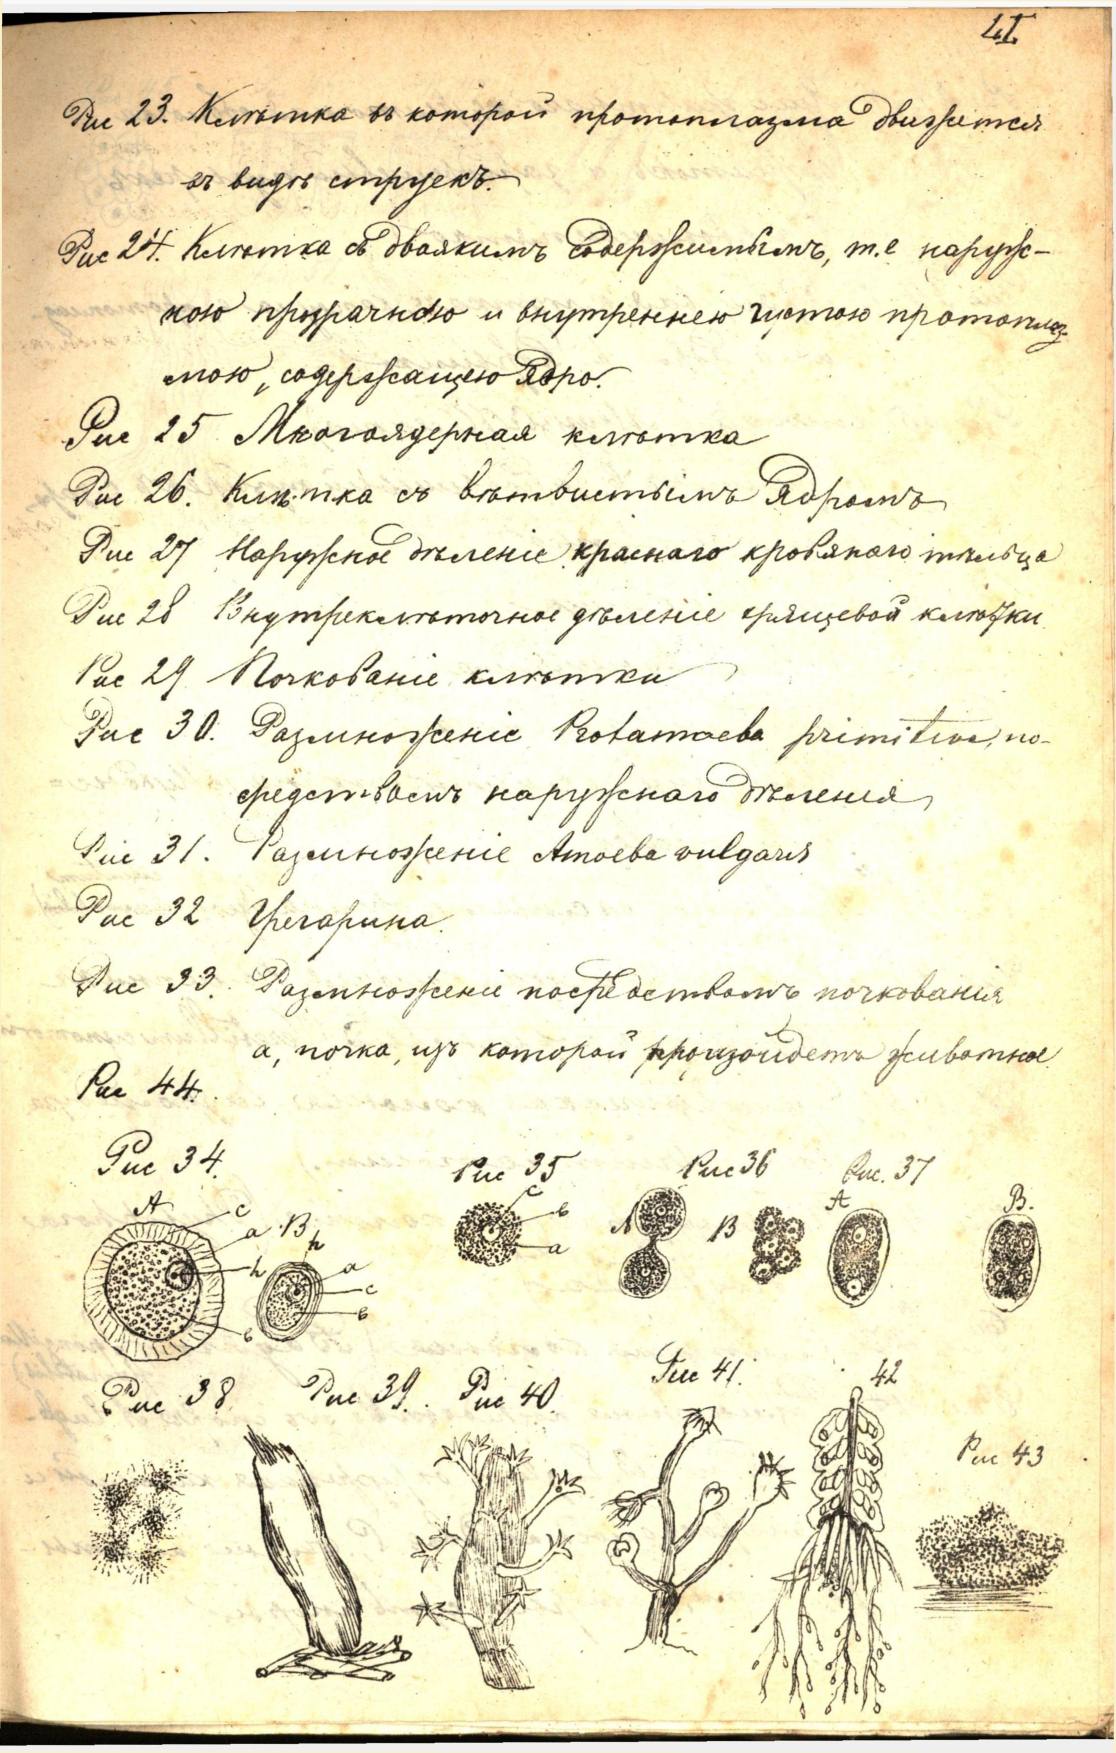 Рис 23. Клѣтка въ которой протоплазма движется
въ видѣ струекъ.
Рис 24. Клѣтка съ двоякимъ содержимымъ, т.е наруж-
ною прозрачною и внутреннею густою протоплаз-
мою, содержащею ядро.
Рис 25 Многоядерная клѣтка
Рис 26. Клѣтка съ вѣтвистымъ ядромъ
Рис 27 Наружное дѣленіе краснаго кровянаго тѣльца
Рис 28 Внутреклѣточное дѣленіе хрящевой клѣтки
Рис 29 Почкованіе клѣтки
Рис 30. Размноженіе Protamoeba primitiva, по-
средствомъ наружнаго дѣленія
Рис 31. Размноженіе Amoeba vulgaris
Рис 32 Грегарина.
Рис 33. Размноженіе посредствомъ почкованія
а, почка, изъ которой произойдетъ животное
Рис 44.
Рис 34. Рис 35 Рис 36 Рис. 37
А с а В h а с в h в
с в а
А В
А В.
Рис 38 Рис 39. Рис 40. Рис 41. 42
Рис 43